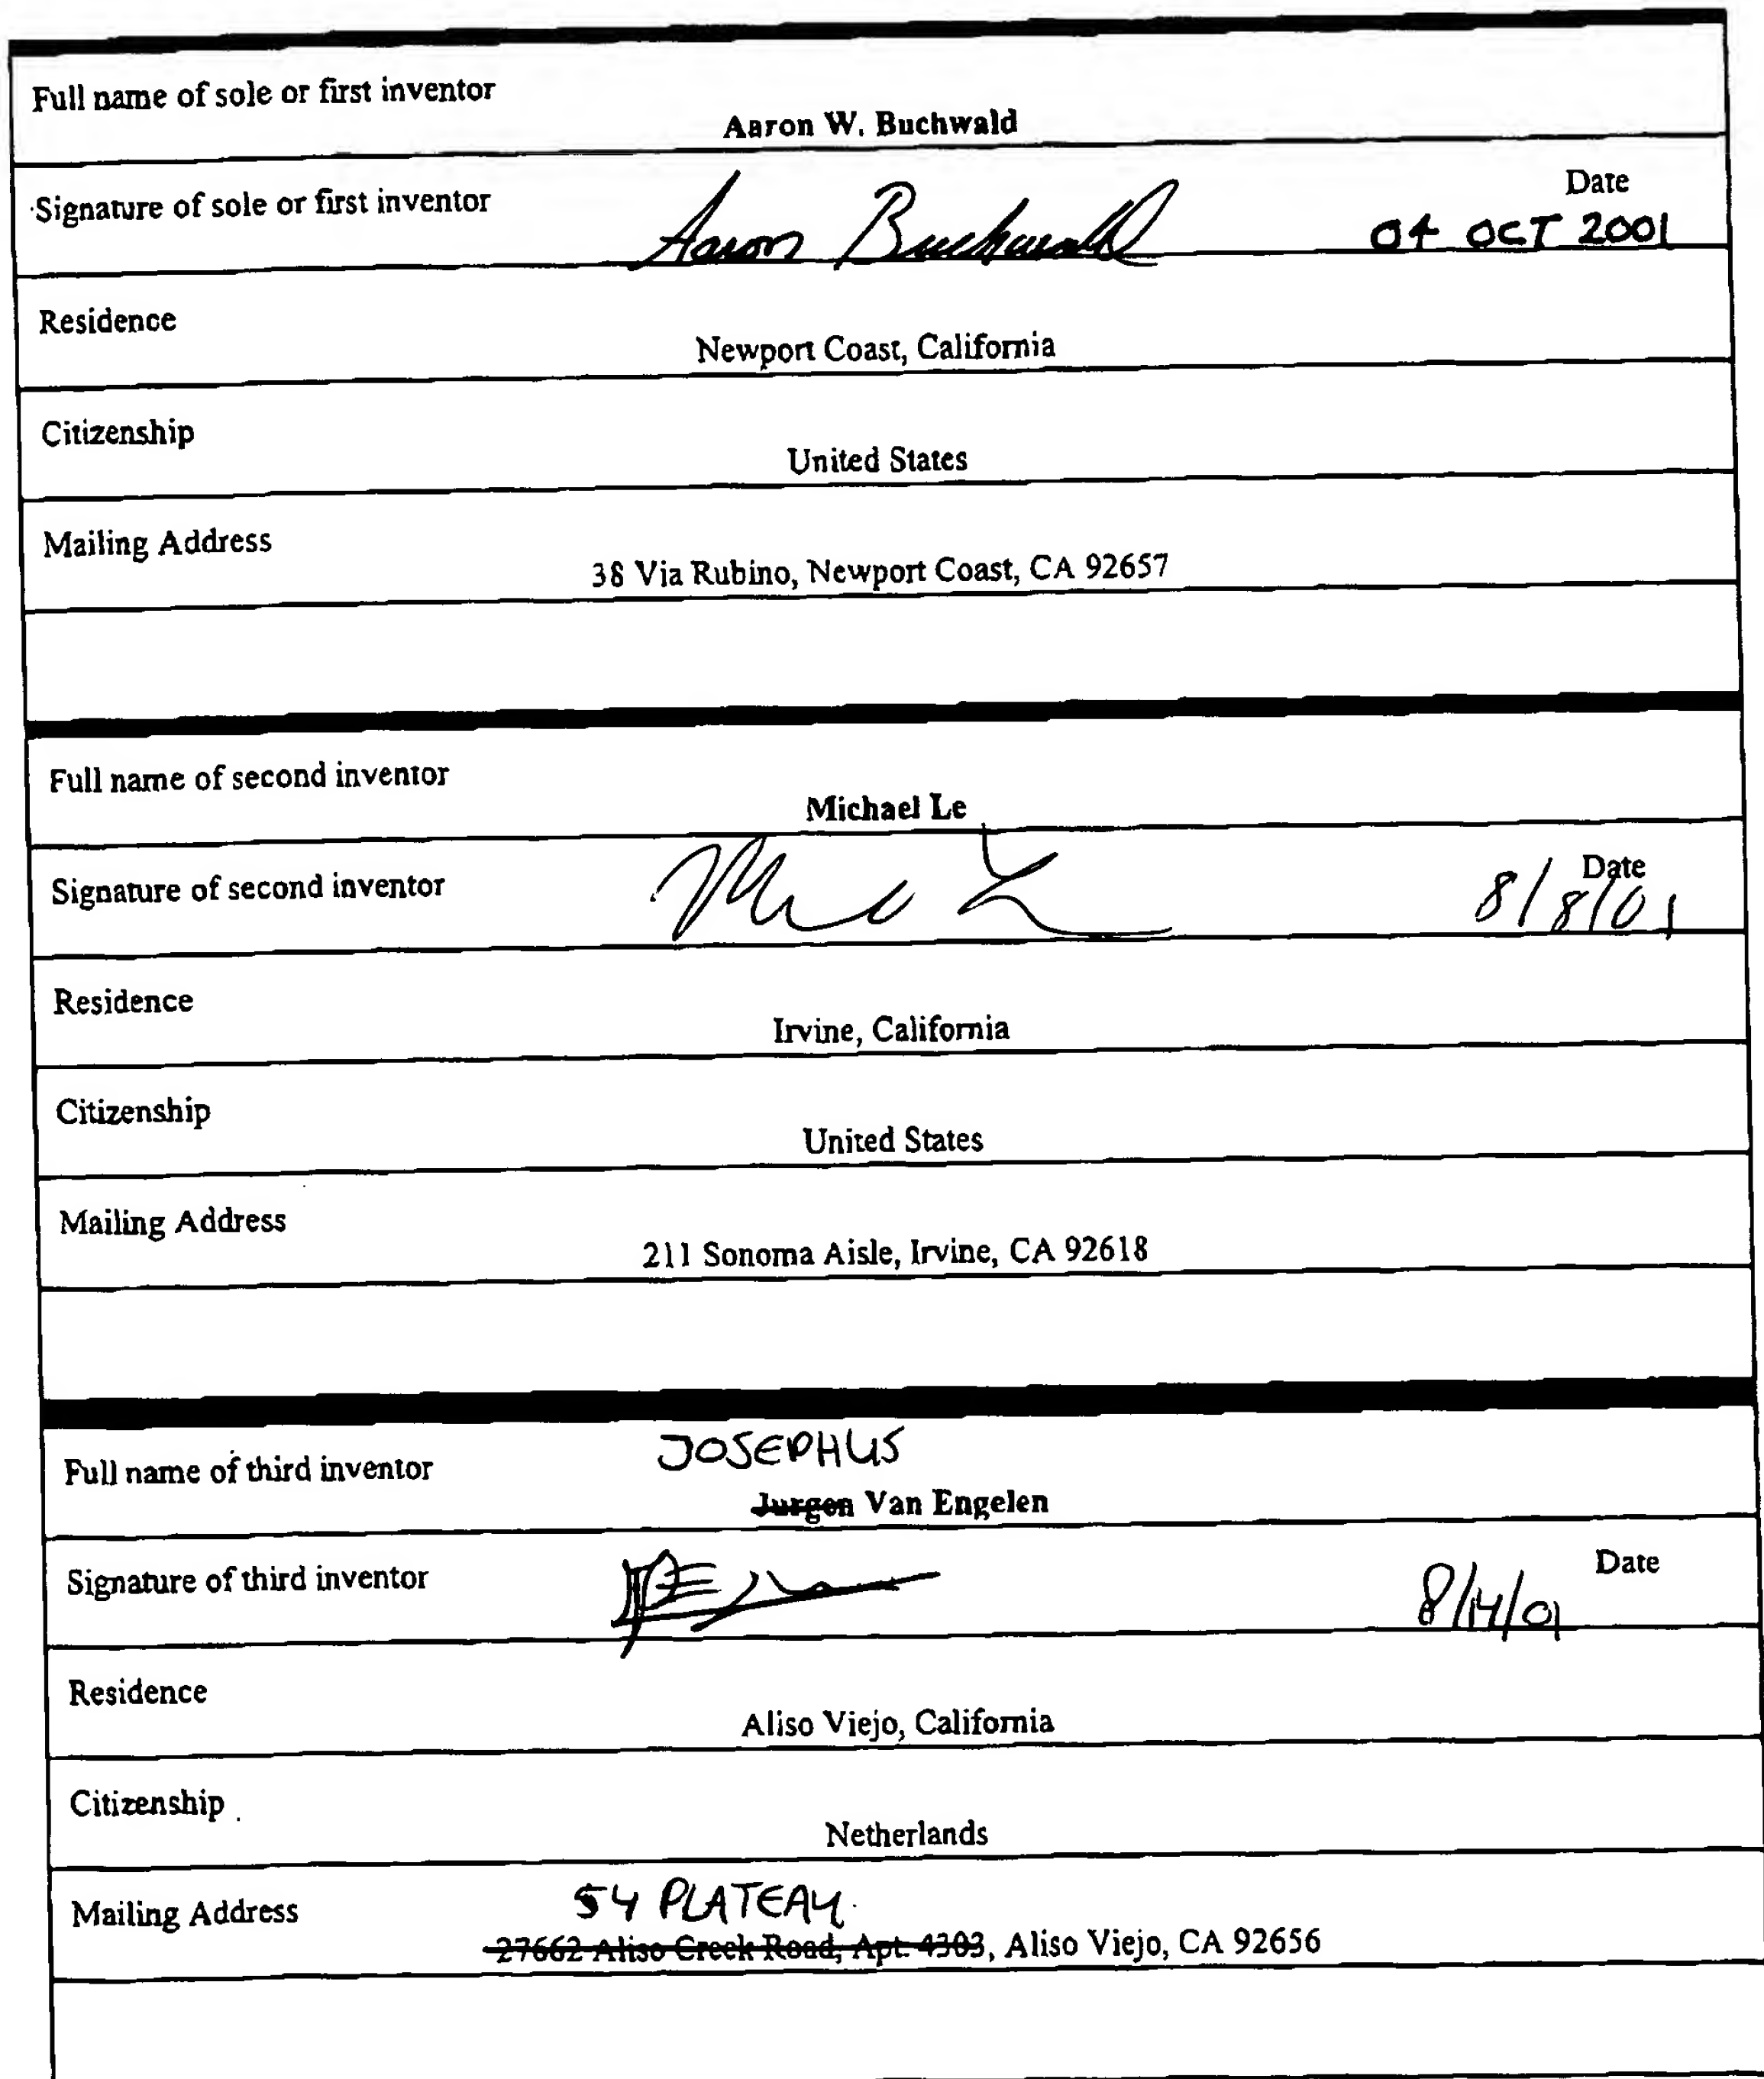 Full name of sole or first inventor
Aaron W. Buchwald
Signature of sole or first inventor
Aaron Buchwald
Date
04 OCT 2001
Residence
Newport Coast, California
Citizenship
United States
Mailing Address
38 Via Rubino, Newport Coast, CA 92657
Full name of second inventor
Michael Le
Signature of second inventor
Date
8/8/01
Residence
Irvine, California
Citizenship
United States
Mailing Address
211 Sonoma Aisle, Irvine, CA 92618
Full name of third inventor
JOSEPHUS
Jurgen Van Engelen
Signature of third inventor
Date
8/14/01
Residence
Aliso Viejo, California
Citizenship
Netherlands
Mailing Address
54 PLATEAU
27662 Aliso Creek Road, Apt. 4303, Aliso Viejo, CA 92656